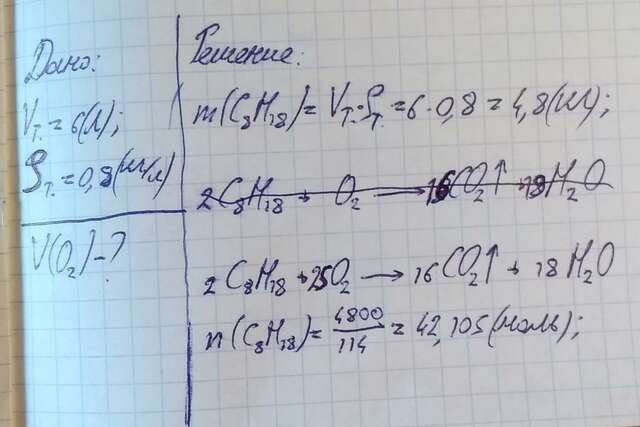 Дано:
Vт. = 6(л);
ρт. = 0,8(кг/л)
V(O₂) - ?
Решение:
m(C₈H₁₈) = Vт. · ρт. = 6 · 0,8 = 4,8(кг);
2C₈H₁₈ + O₂ → 16CO₂↑ + 18H₂O
2C₈H₁₈ + 25O₂ → 16CO₂↑ + 18H₂O
n(C₈H₁₈) = 4800/114 = 42,105(моль);